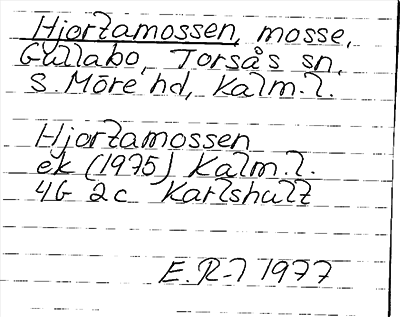 Hjortamossen, mosse,
Gullabo, Torsås sn,
S. Möre hd, Kalm. l.
Hjortamossen
ek (1975) Kalm. l.
4G 2c Karlshult
E. R-l 1977